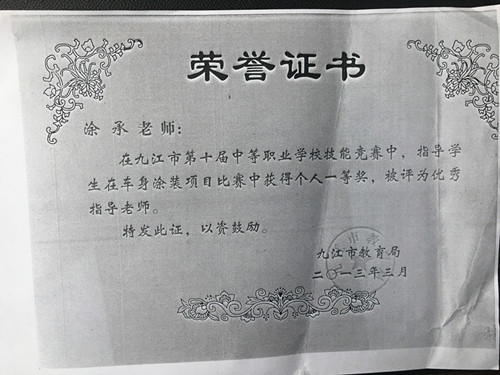 荣誉证书
涂承老师：
在九江市第十届中等职业学校技能竞赛中，指导学
生在车身涂装项目比赛中获得个人一等奖，被评为优秀
指导老师。
特发此证，以资鼓励。
九江市教育局
二〇一三年三月